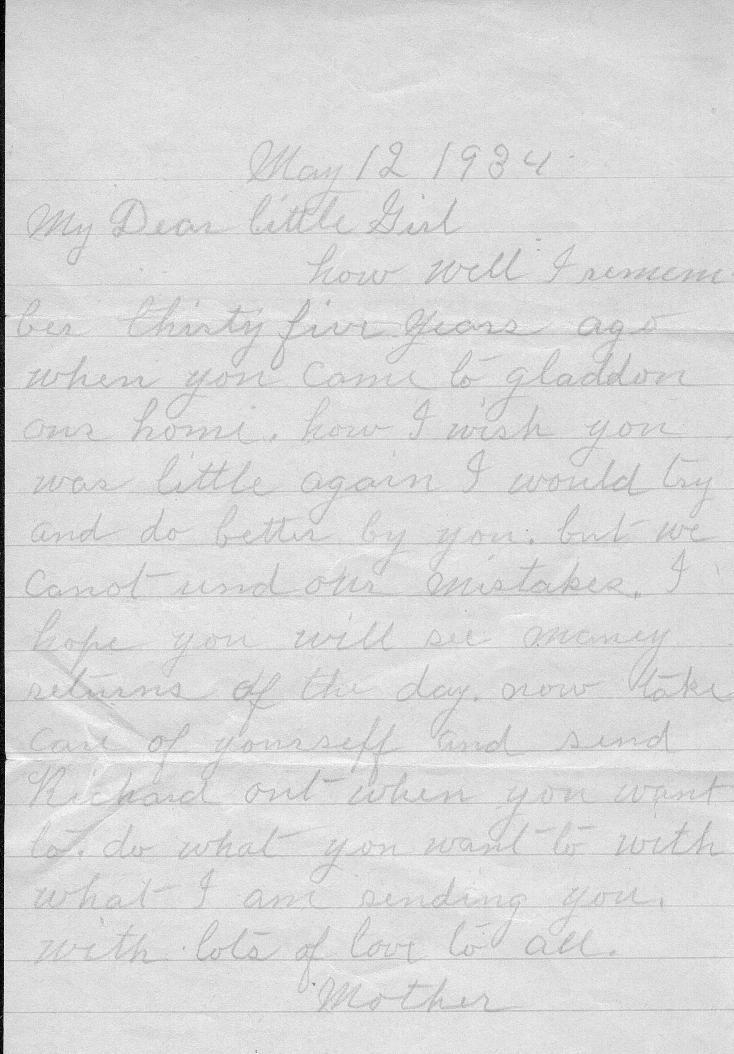 May 12 1934
My Dear little Girl
how well I remem
ber thirty five years ago
when you came to gladdon
our home. how I wish you
was little again I would try
and do better by you. but we
canot und our mistakes. I
hope you will see maney
returns of the day. now take
care of yourseff and send
Richard out when you want
to. do what you want to with
what I am sending you.
with lots of love to all.
Mother